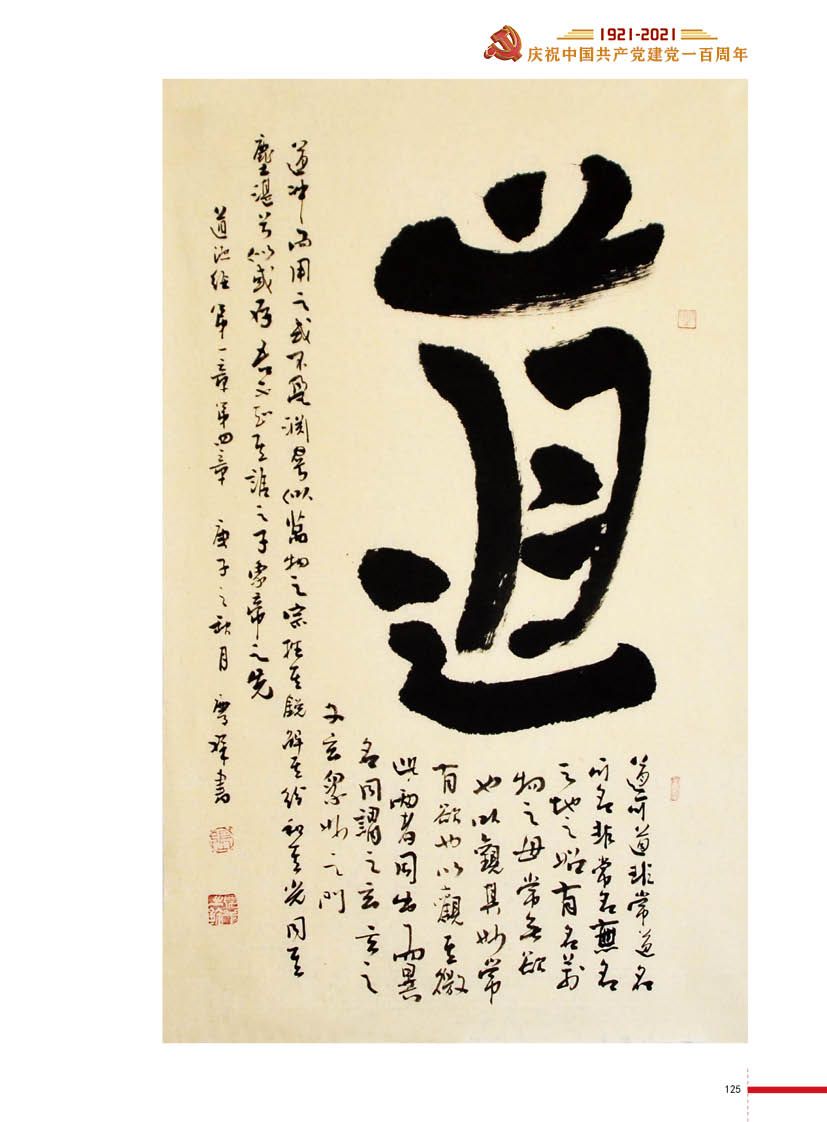 1921-2021
庆祝中国共产党建党一百周年
道
道可道非常道名
可名非常名無名
天地之始有名萬
物之母常無欲
也以觀其妙常
有欲也以觀其徼
此兩者同出而異
名同謂之玄玄之
又玄眾妙之門
道冲而用之或不盈淵兮似萬物之宗挫其銳解其紛和其光同其
塵湛兮似或存吾不知其誰之子象帝之先
道德經第一章第四章 庚子之秋月 書
125